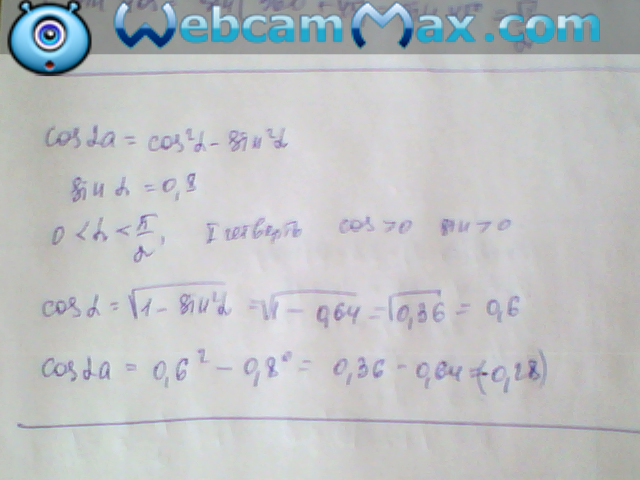 WebcamMax.com
cos2a = cos²α - sin²α
sin α = 0,8
0 < α < π/2, I четверть cos > 0 sin > 0
cos α = √(1 - sin²α) = √(1 - 0,64) = √0,36 = 0,6
cos2a = 0,6² - 0,8² = 0,36 - 0,64 = (-0,28)